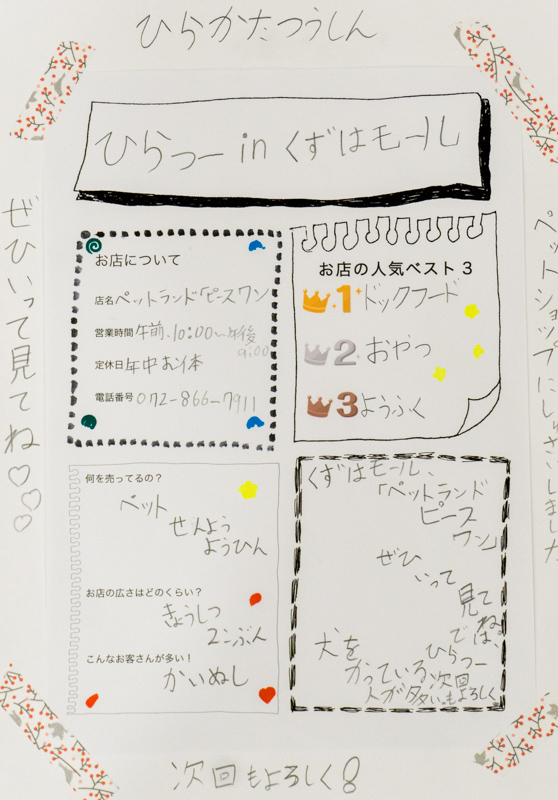 ひらかたつうしん
ひらつー in くずはモール
お店について
店名 ペットランド「ピースワン
営業時間 午前.10:00〜午後
9:00
定休日 年中お休
電話番号 072-866-7911
お店の人気ベスト3
1 ドックフード
2 おやつ
3 ようふく
何を売ってるの？
ペット
せんよう
ようひん
お店の広さはどのくらい？
きょうしつ
2こぶん
こんなお客さんが多い！
かいぬし
くずはモール、
「ペットランド
ピース
ワン」
ぜひ
いって
見て
ね。
では、
ひらつー
次回
もよろしく
犬を
かっている
人が多い。
ぜひいって見てね♡♡♡
ペットショップにしゅざいしました
次回もよろしく!